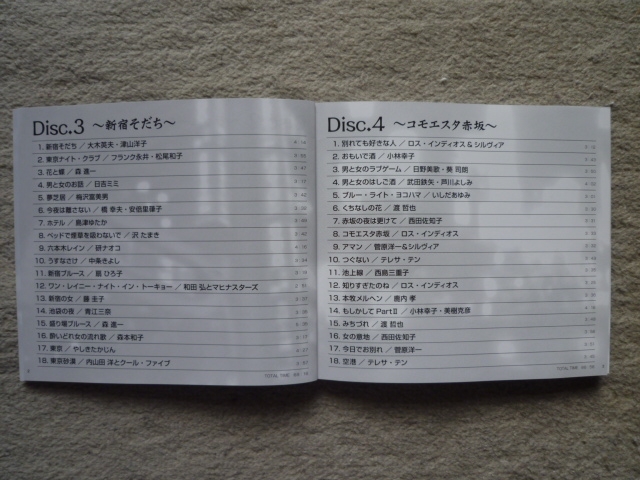 Disc.3 ～新宿そだち～
1. 新宿そだち／大木英夫・津山洋子
2. 東京ナイト・クラブ／フランク永井・松尾和子
3. 花と蝶／森 進一
4. 男と女のお話／日吉ミミ
5. 夢芝居／梅沢富美男
6. 今夜は離さない／橋 幸夫・安倍里葎子
7. ホテル／島津ゆたか
8. ベッドで煙草を吸わないで／沢 たまき
9. 六本木レイン／研ナオコ
10. うすなさけ／中条きよし
11. 新宿ブルース／扇 ひろ子
12. ワン・レイニー・ナイト・イン・トーキョー／和田 弘とマヒナスターズ
13. 新宿の女／藤 圭子
14. 池袋の夜／青江三奈
15. 盛り場ブルース／森 進一
16. 酔いどれ女の流れ歌／森本和子
17. 東京／やしきたかじん
18. 東京砂漠／内山田 洋とクール・ファイブ
TOTAL TIME
Disc.4 ～コモエスタ赤坂～
1. 別れても好きな人／ロス・インディオス＆シルヴィア
2. おもいで酒／小林幸子
3. 男と女のラブゲーム／日野美歌・葵 司朗
4. 男と女のはしご酒／武田鉄矢・芦川よしみ
5. ブルー・ライト・ヨコハマ／いしだあゆみ
6. くちなしの花／渡 哲也
7. 赤坂の夜は更けて／西田佐知子
8. コモエスタ赤坂／ロス・インディオス
9. アマン／菅原洋一＆シルヴィア
10. つぐない／テレサ・テン
11. 池上線／西島三重子
12. 知りすぎたのね／ロス・インディオス
13. 本牧メルヘン／鹿内 孝
14. もしかして PartⅡ／小林幸子・美樹克彦
15. みちづれ／渡 哲也
16. 女の意地／西田佐知子
17. 今日でお別れ／菅原洋一
18. 空港／テレサ・テン
TOTAL TIME